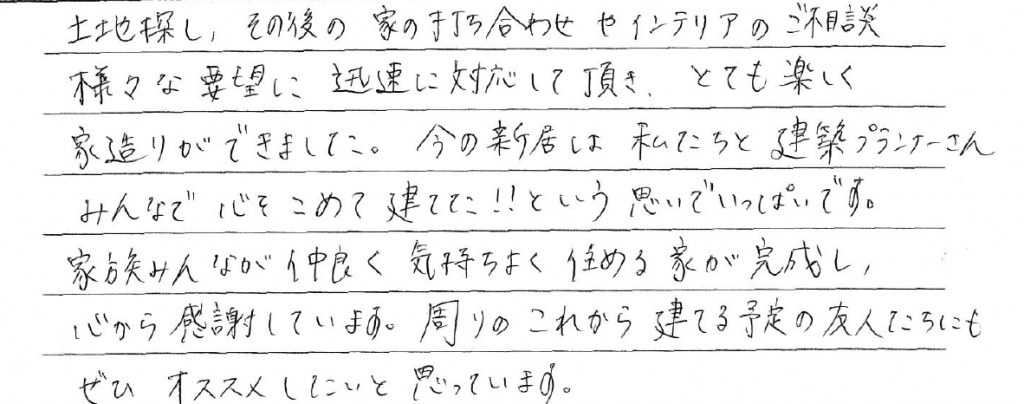 土地探し, その後の 家の打ち合わせ やインテリアの ご相談
様々な 要望に 迅速に対応して頂き、 とても 楽しく
家造りができました。 今の新居は 私たちと 建築プランナーさん
みんなで 心をこめて 建てた!!という 思いでいっぱいです。
家族みんなが 仲良く 気持ちよく 住める 家が 完成し,
心から 感謝しています。 周りの これから 建てる予定の友人たちにも
ぜひ オススメしたいと 思っています。